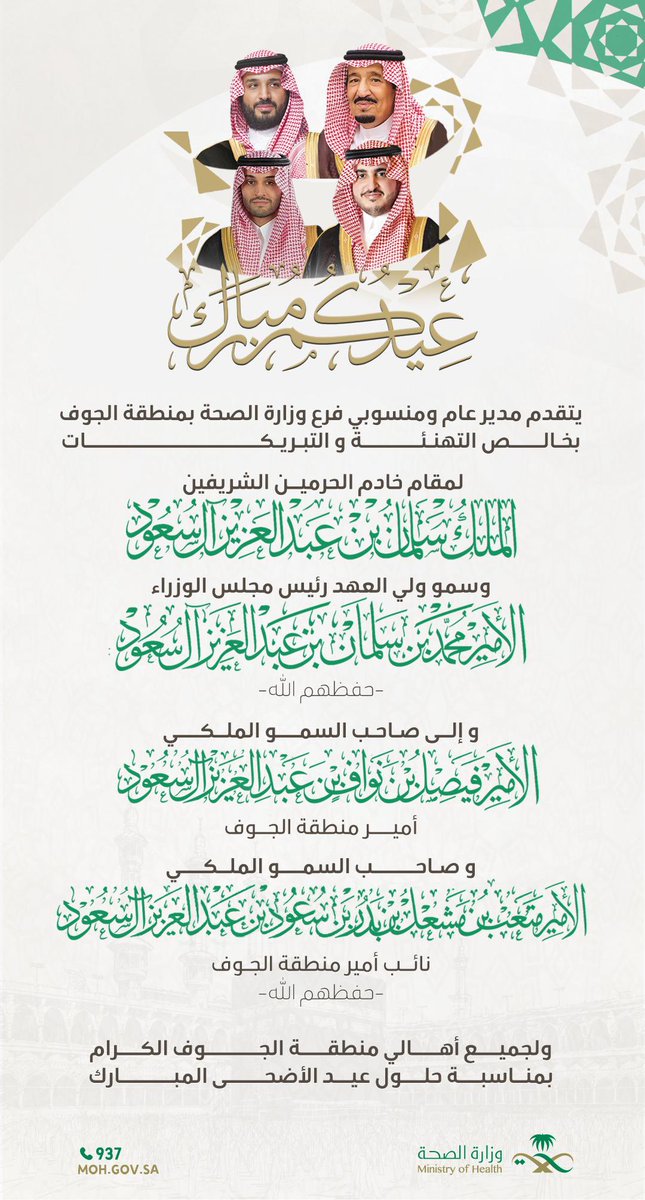 عيدكم مبارك
يتقدم مدير عام ومنسوبي فرع وزارة الصحة بمنطقة الجوف
بخالص التهنئة و التبريكات
لمقام خادم الحرمين الشريفين
الملك سلمان بن عبدالعزيز آل سعود
وسمو ولي العهد رئيس مجلس الوزراء
الأمير محمد بن سلمان بن عبدالعزيز آل سعود
-حفظهم الله-
و إلى صاحب السمو الملكي
الأمير فيصل بن نواف بن عبدالعزيز آل سعود
أمير منطقة الجوف
و صاحب السمو الملكي
الأمير متعب بن مشعل بن بدر بن سعود بن عبدالعزيز آل سعود
نائب أمير منطقة الجوف
-حفظهم الله-
ولجميع أهالي منطقة الجوف الكرام
بمناسبة حلول عيد الأضحى المبارك
وزارة الصحة
Ministry of Health
937
MOH.GOV.SA